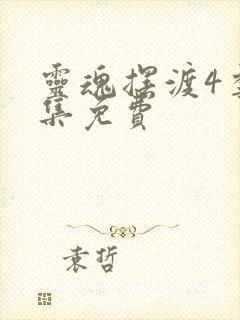 靈魂擺渡4季
集免費
袁哲